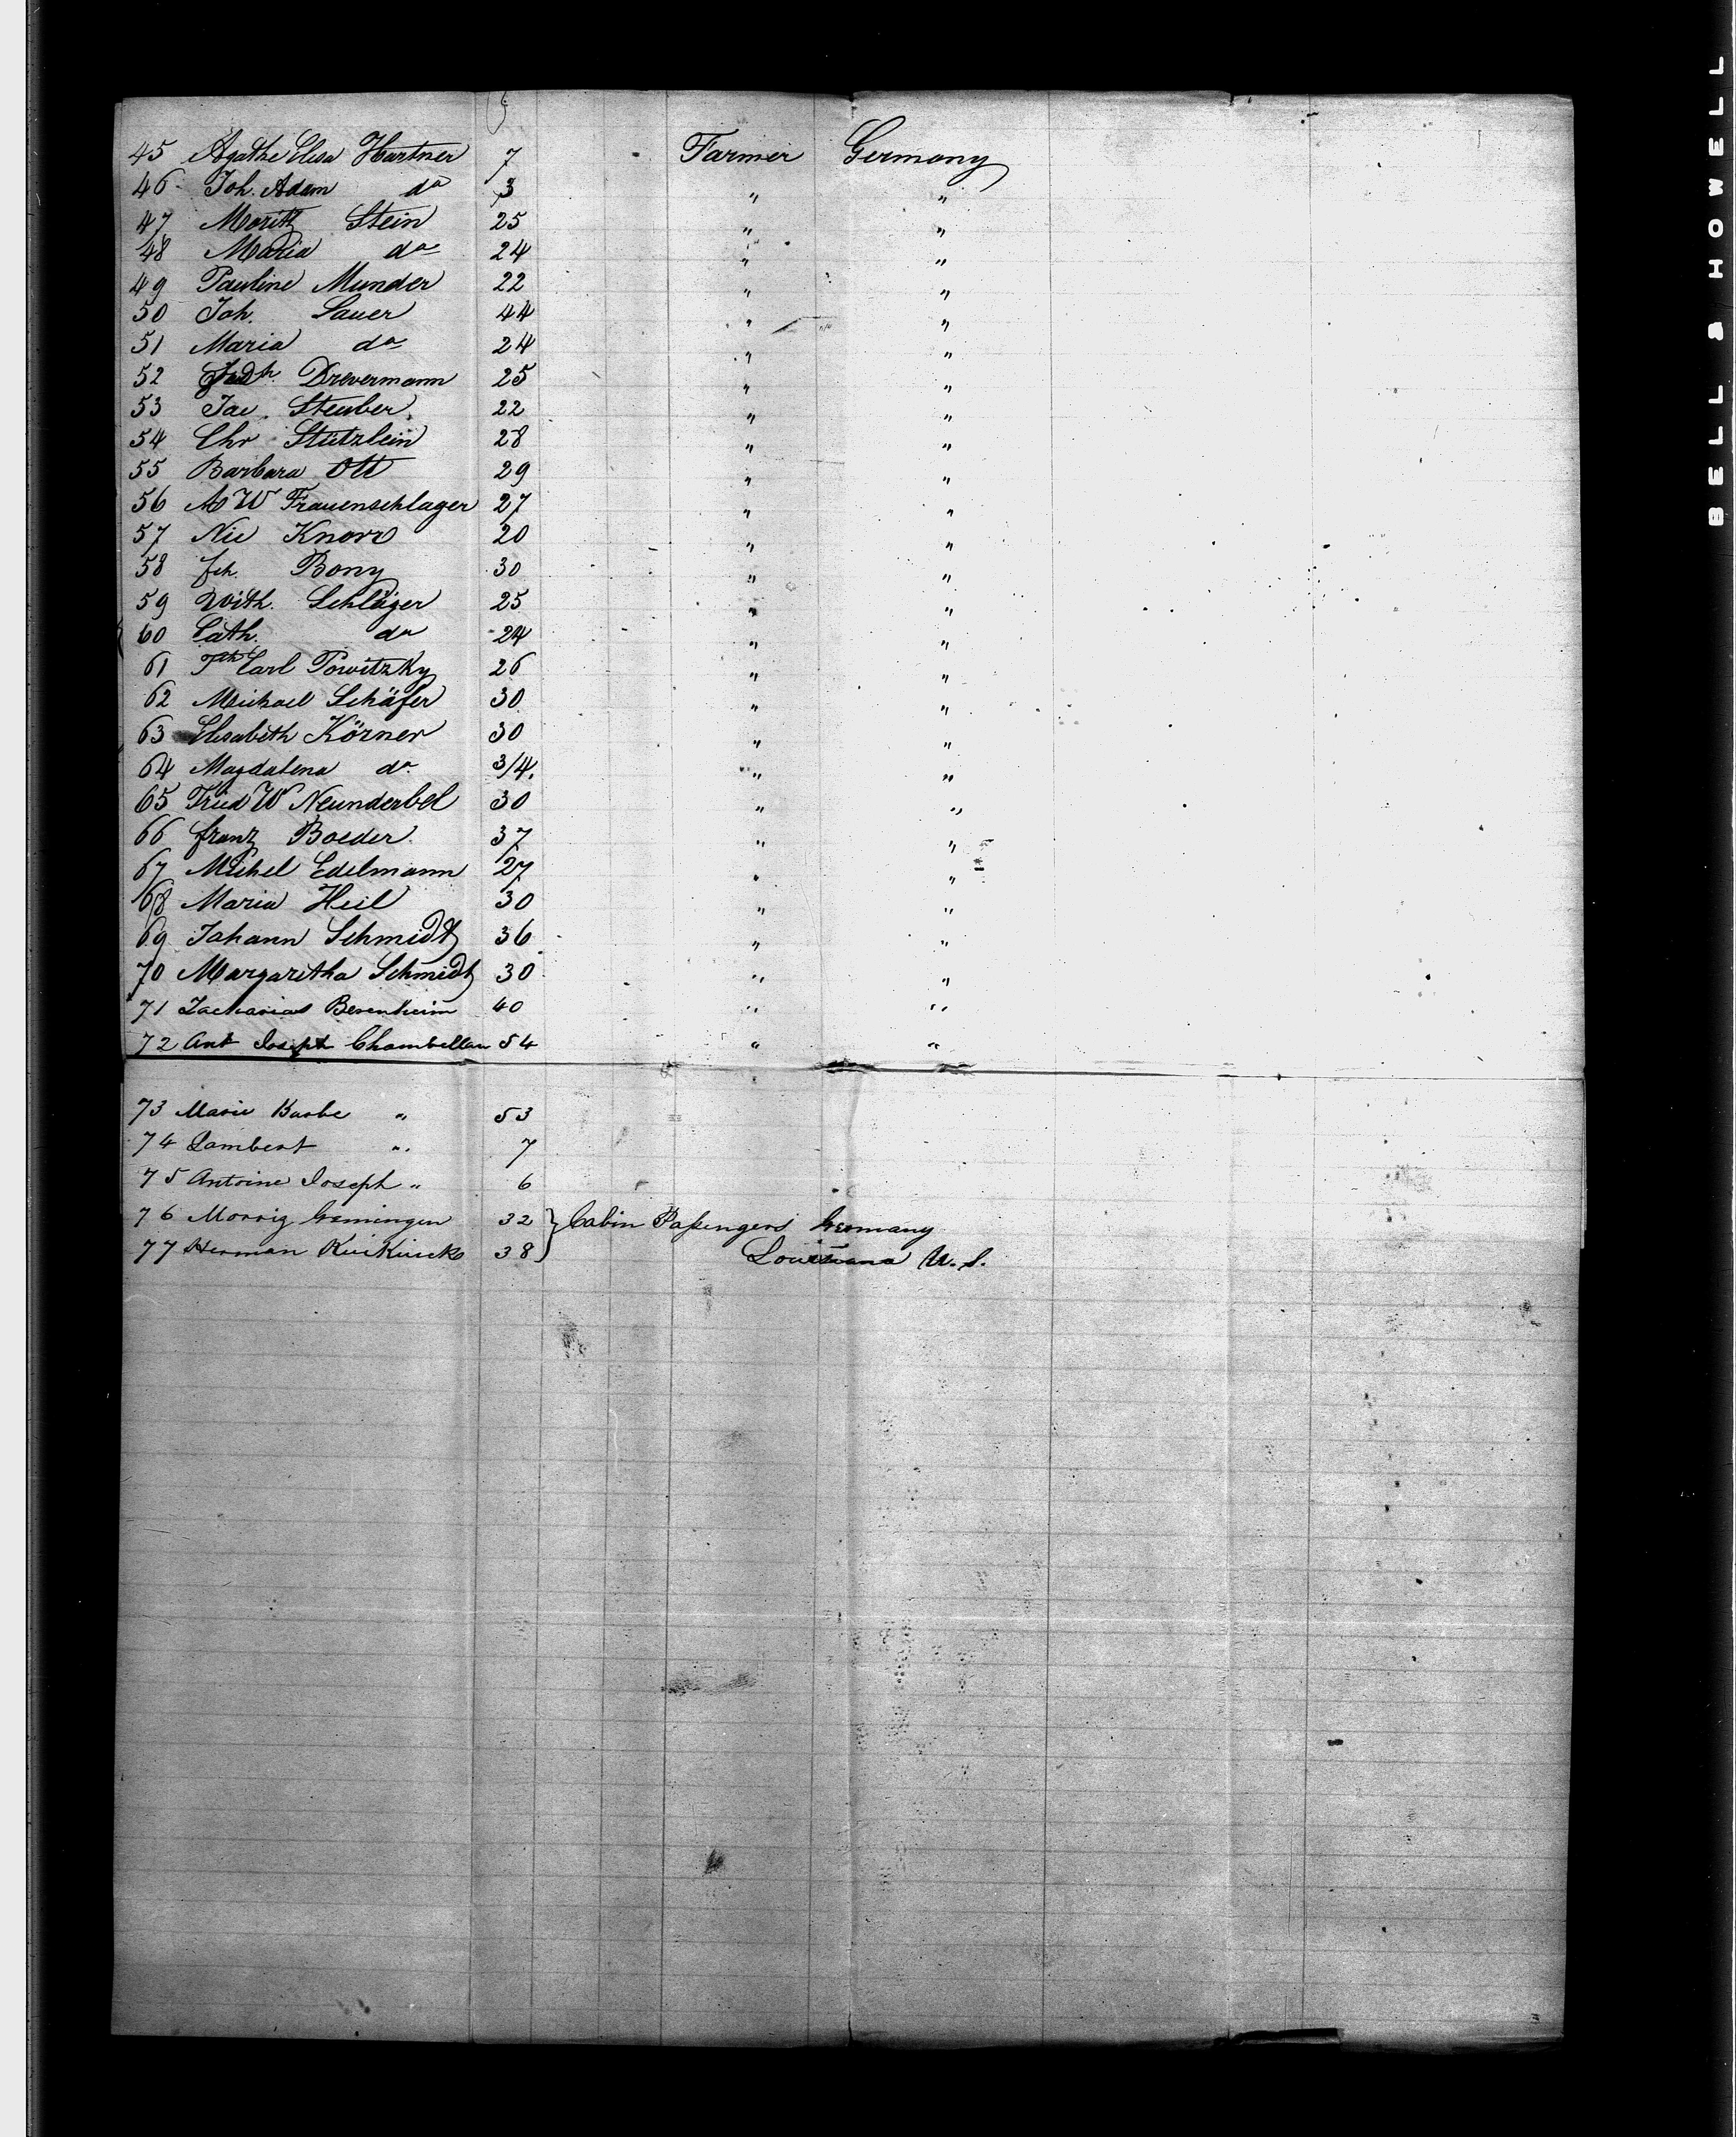 45 Agatha Elisa Hartner 7 Farmer Germany
46 Joh. Adam do 3 " "
47 Moritz Stein 25 " "
48 Maria do 24 " "
49 Pauline Munder 22 " "
50 Joh. Sauer 44 " "
51 Maria do 24 " "
52 Drevermann 25 " "
53 Jac. Steuber 22 " "
54 Chr Stützlein 28 " "
55 Barbara Ott 29 " "
56 A W Frauenschlager 27 " "
57 Nic Knorr 20 " "
58 Bony 30 " "
59 Schläger 25 " "
60 Cath. do 24 " "
61 Carl Powitzky 26 " "
62 Michael Schäfer 30 " "
63 Elisabeth Körner 30 " "
64 Magdalena do 3/4. " "
65 Fried W Neunderbel 30 " "
66 Franz Boeder 37 " "
67 Michel Edelmann 27 " "
68 Maria Heil 30 " "
69 Johann Schmidt 36 " "
70 Margaritha Schmidt 30 " "
71 Zacharias Berenheim 40 " "
72 Ant Joseph Chambellan 54 " "
73 Marie Barbe " 53
74 Lambert " 7
75 Antoine Joseph " 6
76 Morriz Gemingen 32 } Cabin Passengers Germany
77 Herman 38 } Louisiana U. S.
BELL & HOWELL